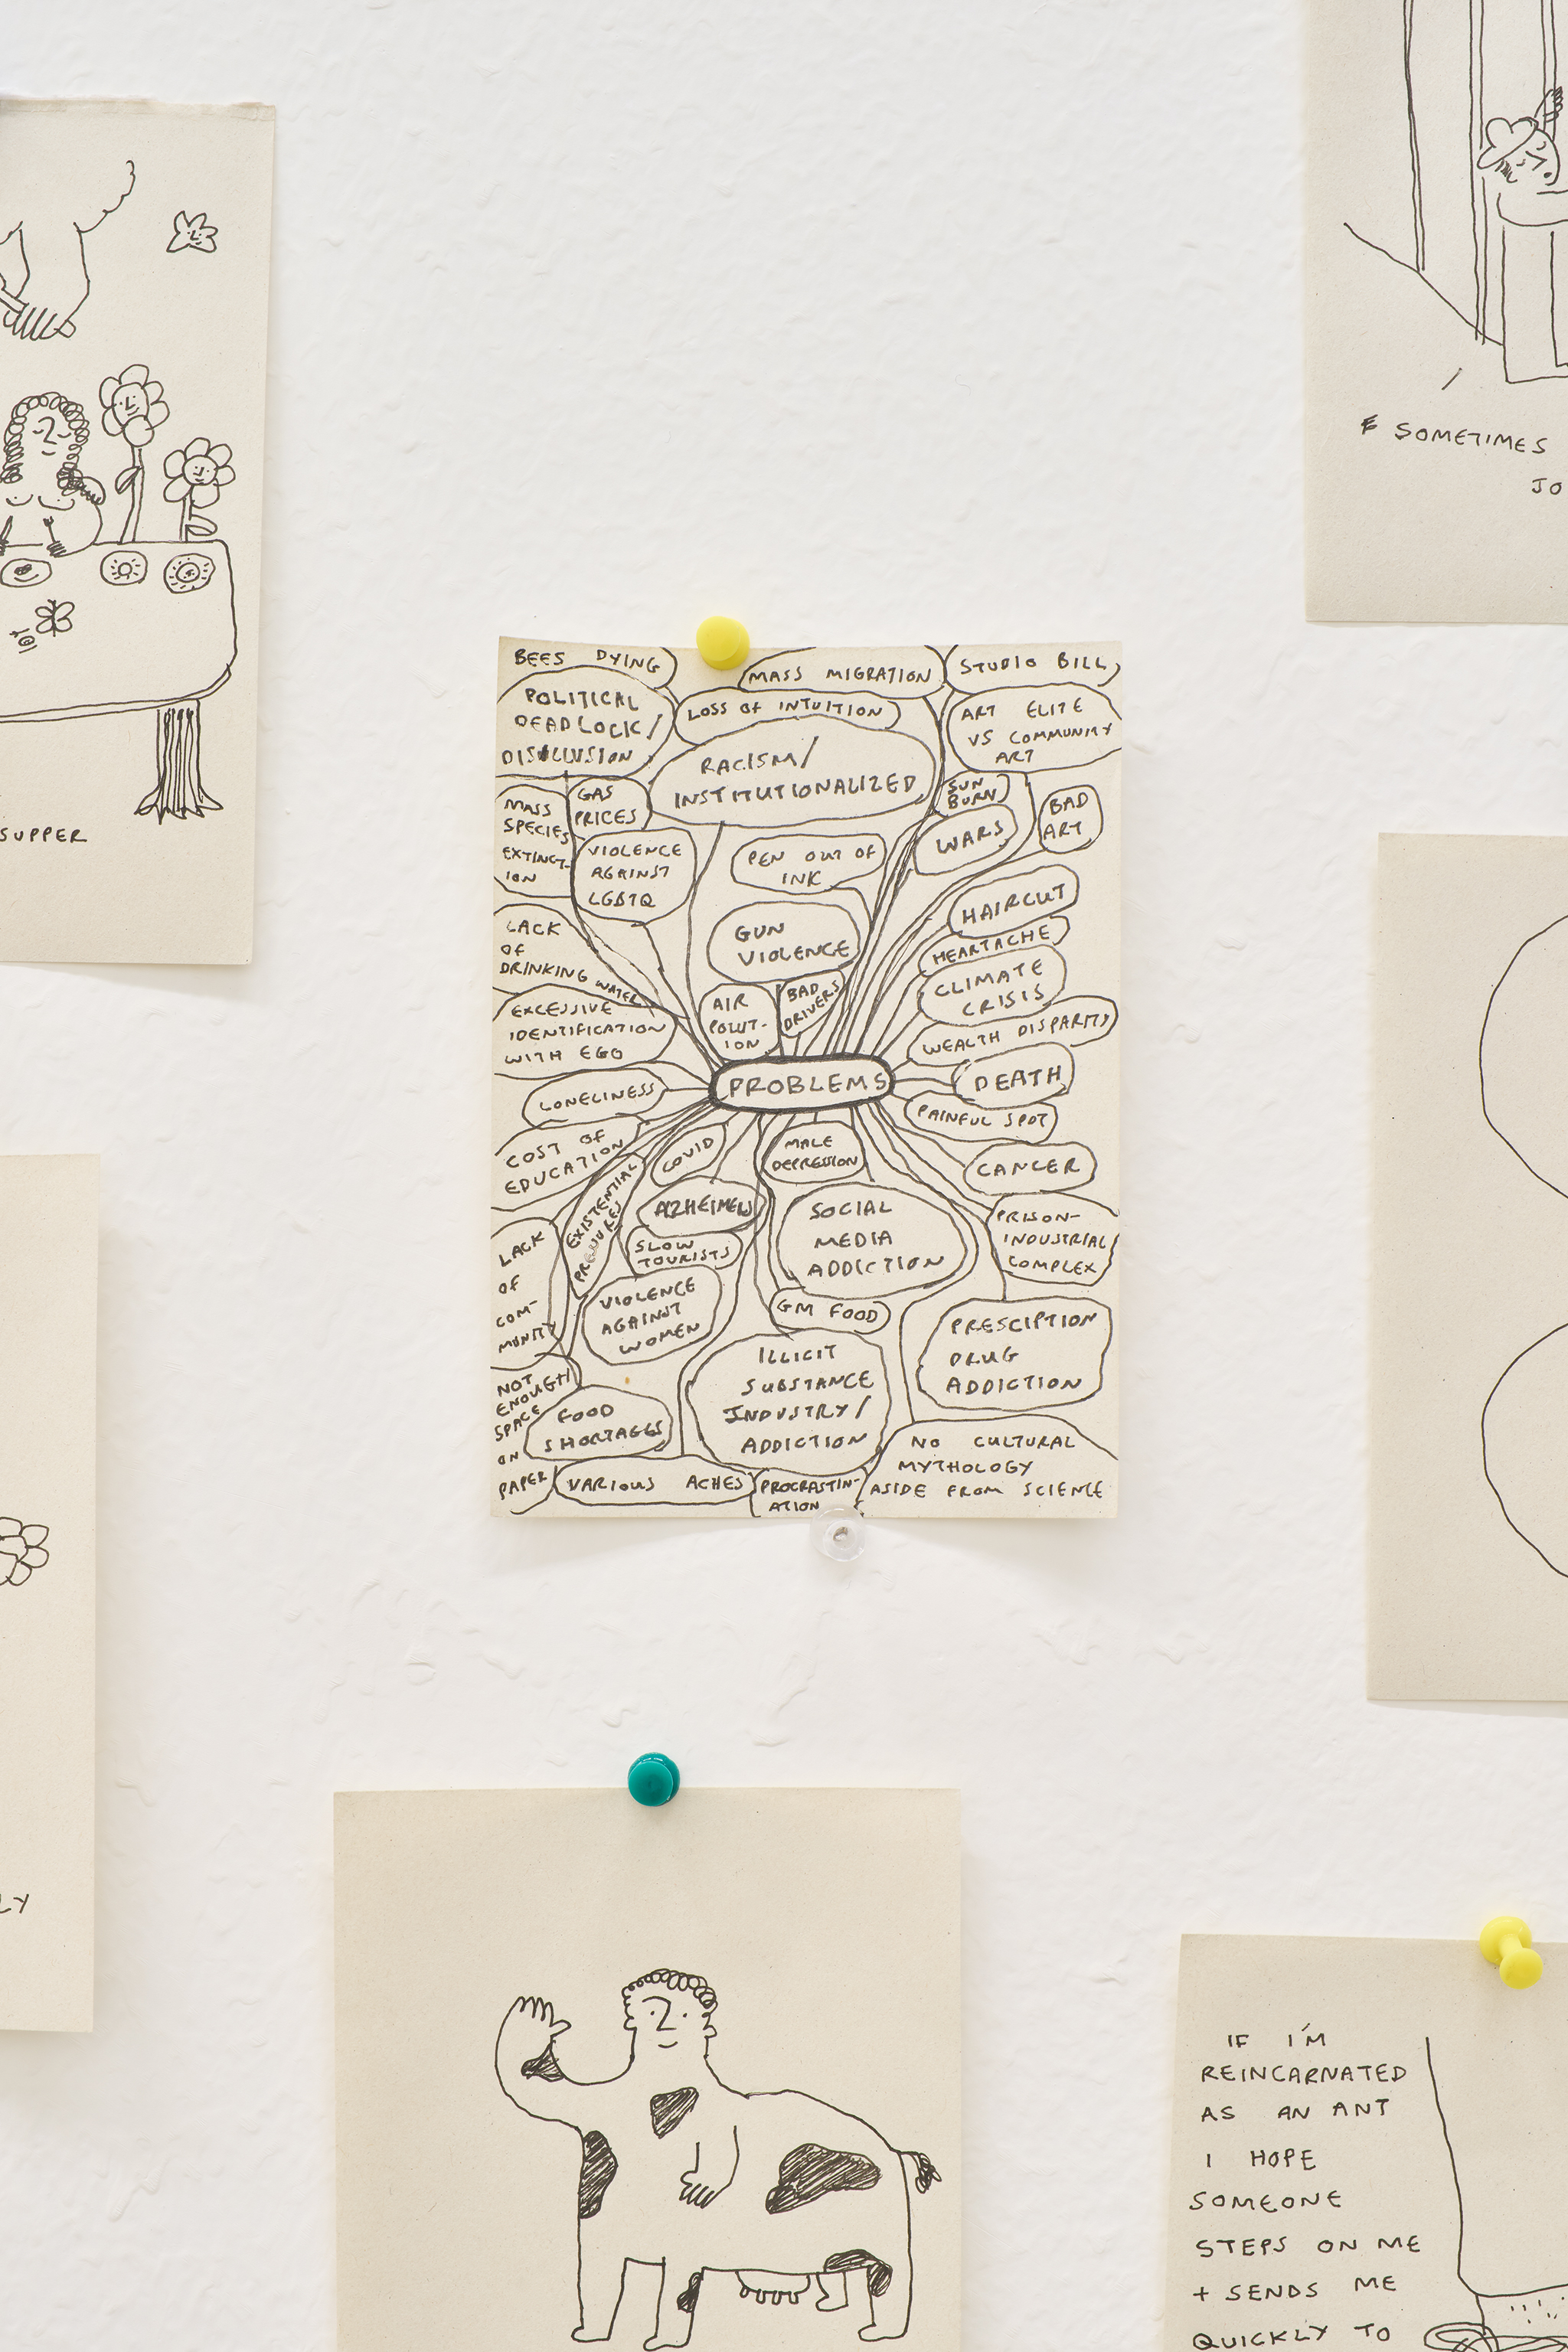 SUPPER
LY
SOMETIMES
JO
BEES DYING
MASS MIGRATION
STUDIO BILL
POLITICAL
DEADLOCK/
DISILLUSION
LOSS OF INTUITION
ART ELITE
VS COMMUNITY
ART
RACISM/
INSTITUTIONALIZED
MASS
SPECIES
EXTINCT-
ION
GAS
PRICES
SUN
BURN
BAD
ART
WARS
VIOLENCE
AGAINST
LGBTQ
PEN OUT OF
INK
HAIRCUT
LACK
OF
DRINKING WATER
GUN
VIOLENCE
HEARTACHE
CLIMATE
CRISIS
EXCESSIVE
IDENTIFICATION
WITH EGO
AIR
POLUT-
ION
BAD
DRIVERS
WEALTH DISPARITY
PROBLEMS
DEATH
LONELINESS
PAINFUL SPOT
COST OF
EDUCATION
COVID
MALE
DEPRESSION
CANCER
EXISTENTIAL
ALZHEIMERS
SOCIAL
MEDIA
ADDICTION
PRISON-
INDUSTRIAL
COMPLEX
LACK
OF
COM-
MUNITY
SLOW
TOURISTS
VIOLENCE
AGAINST
WOMEN
GM FOOD
PRESCIPTION
DRUG
ADDICTION
ILLICIT
SUBSTANCE
INDUSTRY/
ADDICTION
NOT
ENOUGH
SPACE
ON
PAPER
FOOD
SHORTAGES
NO CULTURAL
MYTHOLOGY
ASIDE FROM SCIENCE
VARIOUS ACHES
PROCRASTIN-
ATION
IF I'M
REINCARNATED
AS AN ANT
I HOPE
SOMEONE
STEPS ON ME
+ SENDS ME
QUICKLY TO